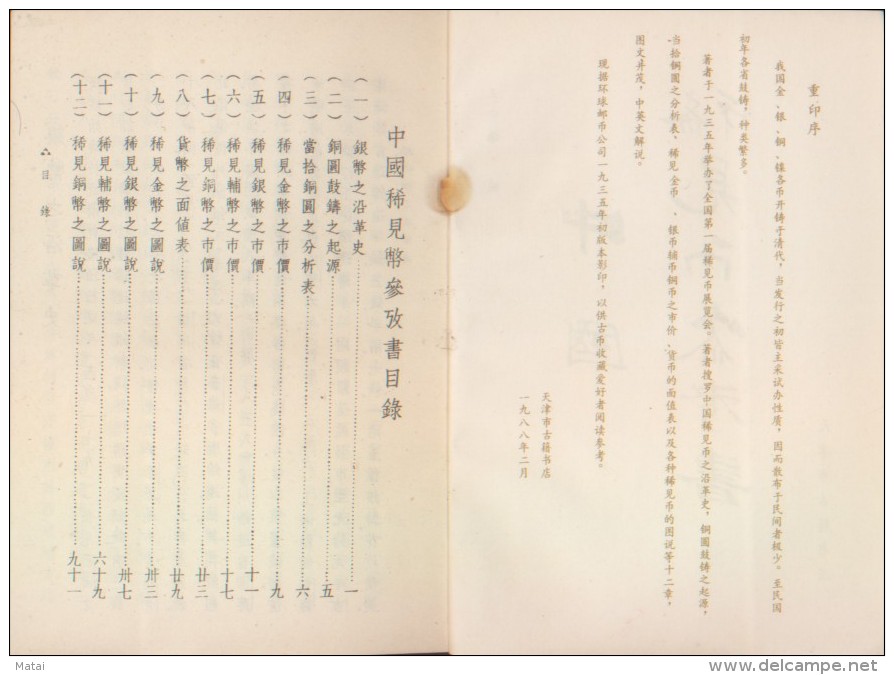 重印序
我国金、银、铜、镍各币开铸于清代，当发行之初皆主采试办性质，因而散布于民间者极少。至民国
初年各省鼓铸，种类繁多。
著者于一九三五年举办了全国第一届稀见币展览会。著者搜罗中国稀见币之沿革史，铜圆鼓铸之起源，
当拾铜圆之分析表，稀见金币、银币辅币铜币之市价、货币的面值表以及各种稀见币的图说等十二章，
图文并茂，中英文解说。
现据环球邮币公司一九三五年初版本影印，以供古币收藏爱好者阅读参考。
天津市古籍书店
一九八八年二月
中國稀見幣參攷書目錄
（一）銀幣之沿革史…………一
（二）銅圓鼓鑄之起源…………五
（三）當拾銅圓之分析表…………六
（四）稀見金幣之市價…………九
（五）稀見銀幣之市價…………十一
（六）稀見輔幣之市價…………十七
（七）稀見銅幣之市價…………廿三
（八）貨幣之面值表…………廿九
（九）稀見金幣之圖說…………卅三
（十）稀見銀幣之圖說…………卅七
（十一）稀見輔幣之圖說…………六十九
（十二）稀見銅幣之圖說…………九十一
目錄
Matai
www.delcampe.net